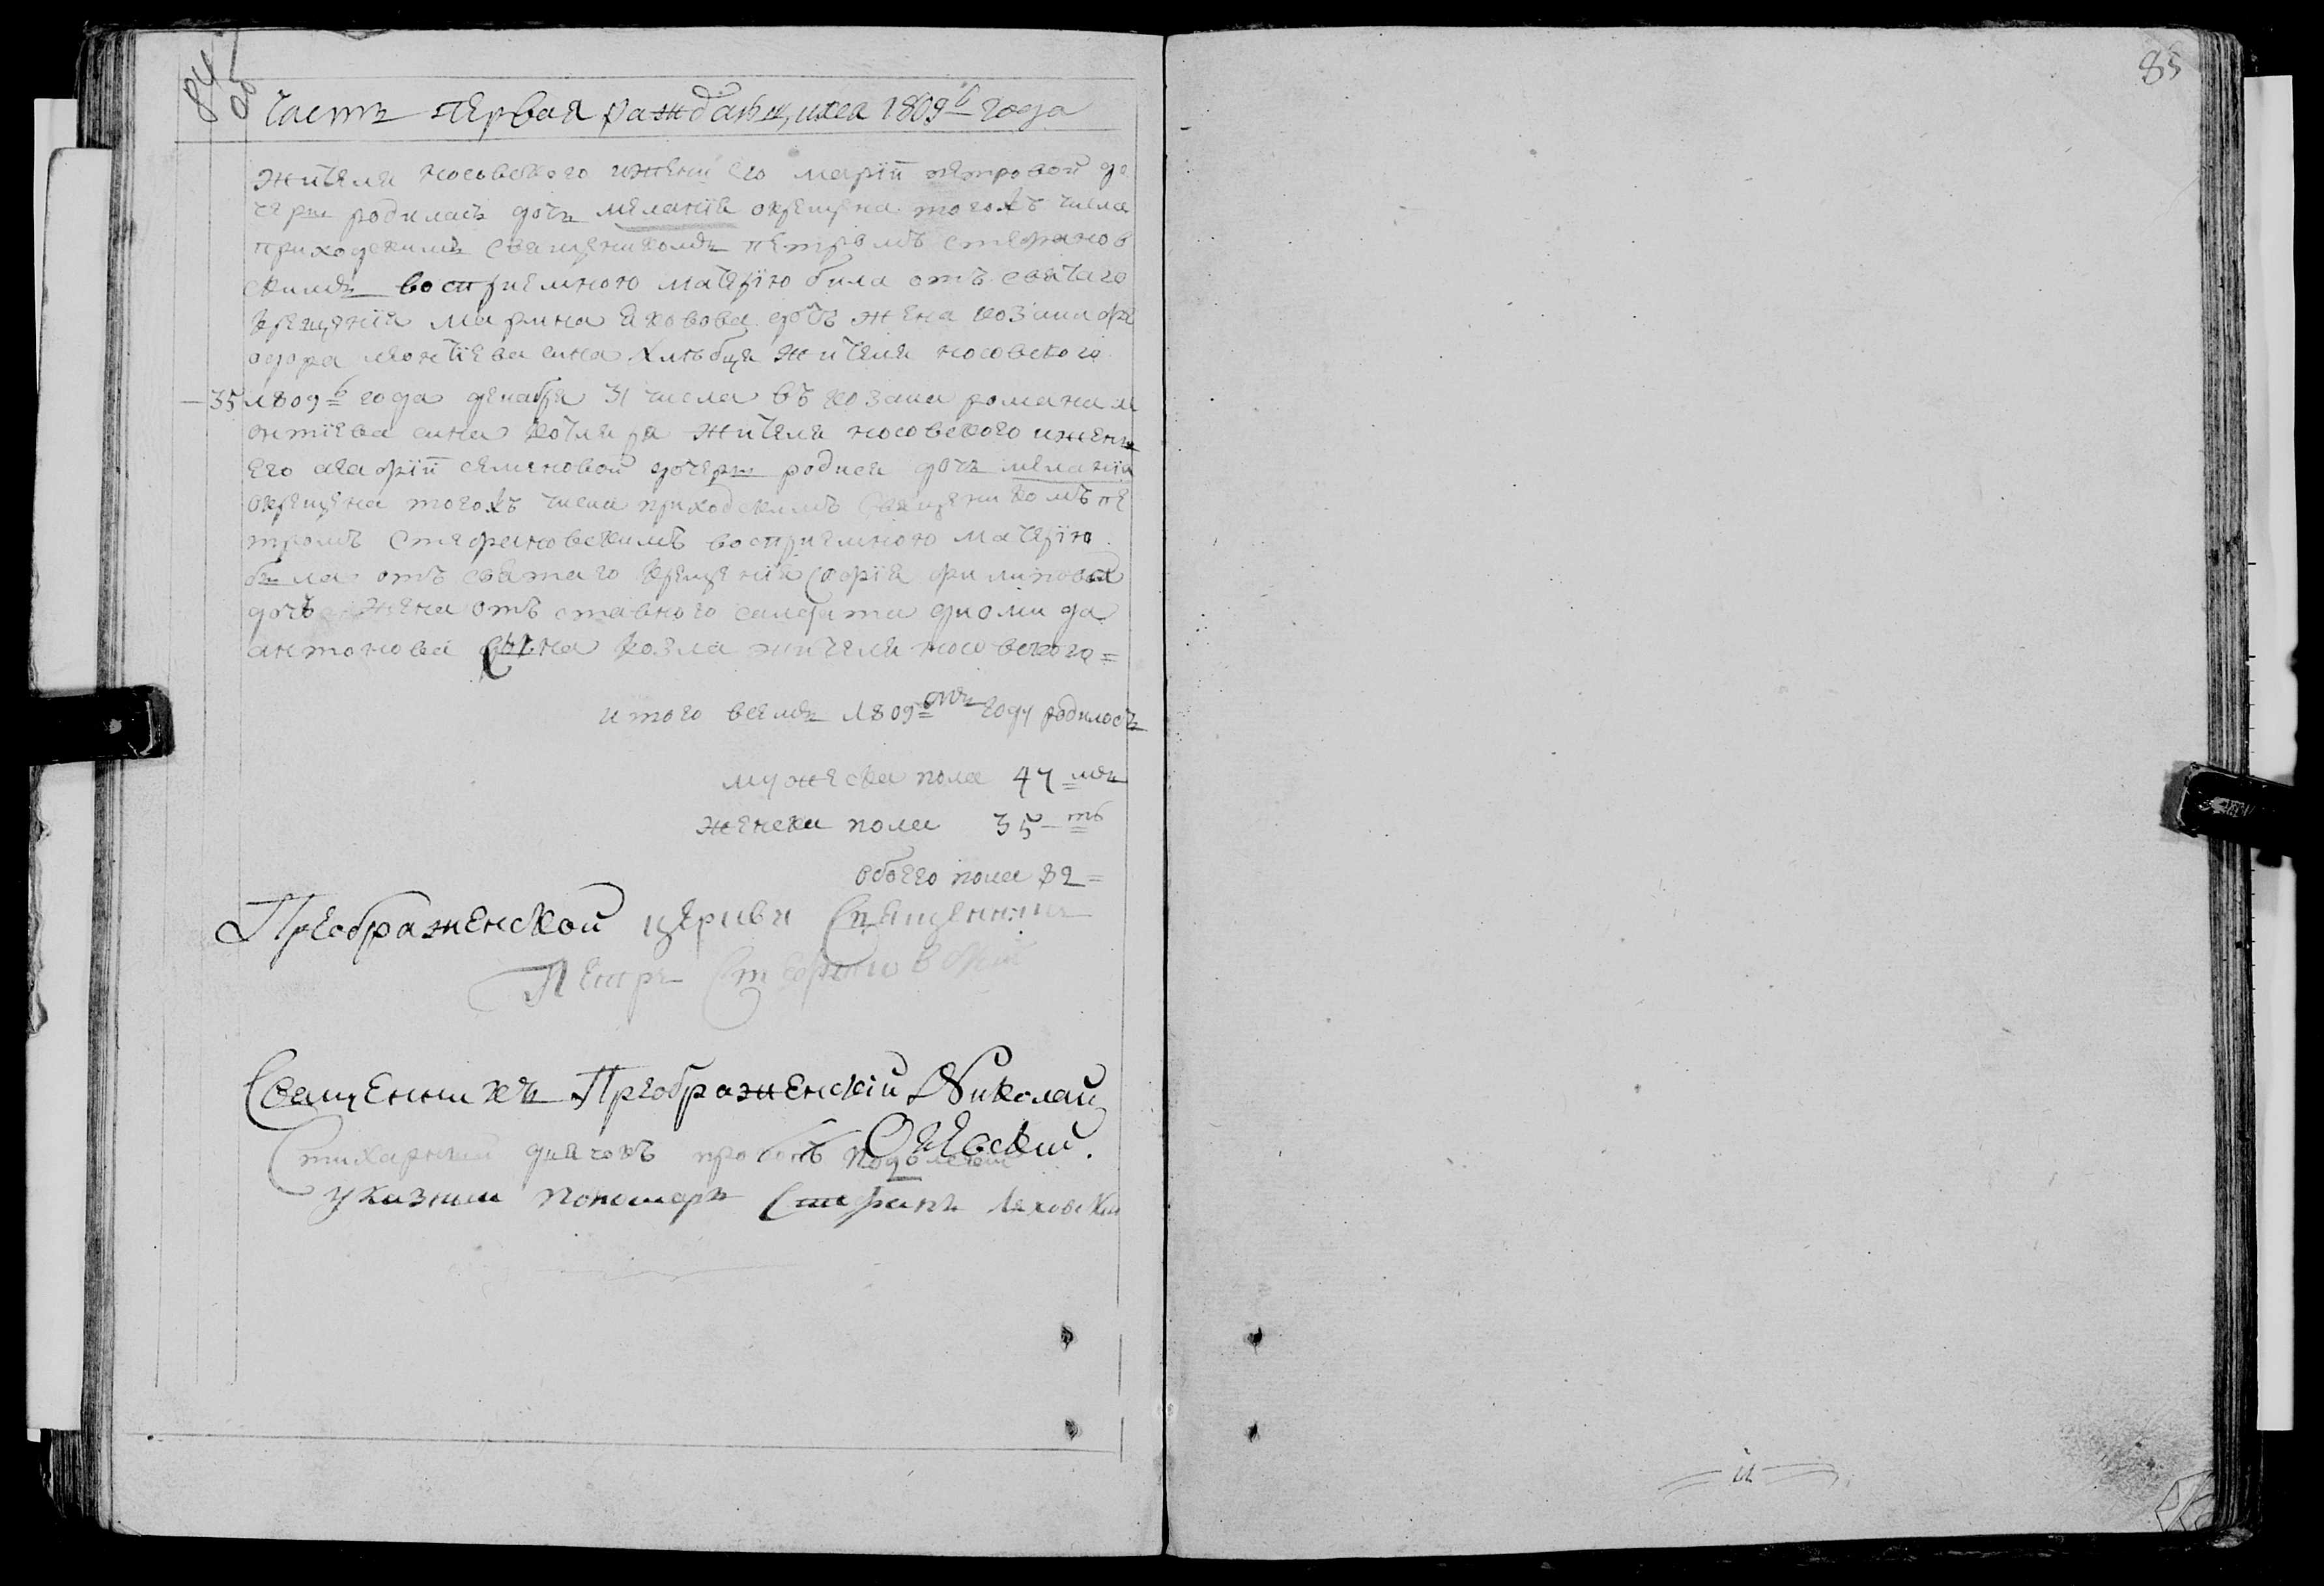 84
85
Часть первая раждающихся 1809го года
жителя носовского и жени его маріи петровой до
чери родилась дочь меланія окрещена того жъ числа
приходскимъ священикомъ петромъ стефанов
скимъ воспріемною матерію била отъ святаго
крещенія марина яковова дочъ жена козака фе
одора леонтіева сина хлѣбця жителя носовского
35 1809го года декабря 31 числа въ козака романа ле
онтіева сина котляра жителя носовского и жени
его агафіи семеновой дочери родися дочь меланія
окрещена того жъ числа приходскимъ священикомъ пе
тромъ стефановскимъ воспріемною матерію
била отъ святаго крещенія софія филипова
дочъ жена отъ ставного салдата диомида
антонова сына козла жителя носовского =
итого всемъ 1809омъ году родилось
мужеска пола 47 мъ
женска пола 35 ть
обоего пола 82 =
Преображенской церкви Священникъ
Петръ Стефановский
Священникъ Преображенскій Николай
Олевский.
Стихарный дьячокъ подолский
указний пономарь Стефанъ Ляховский